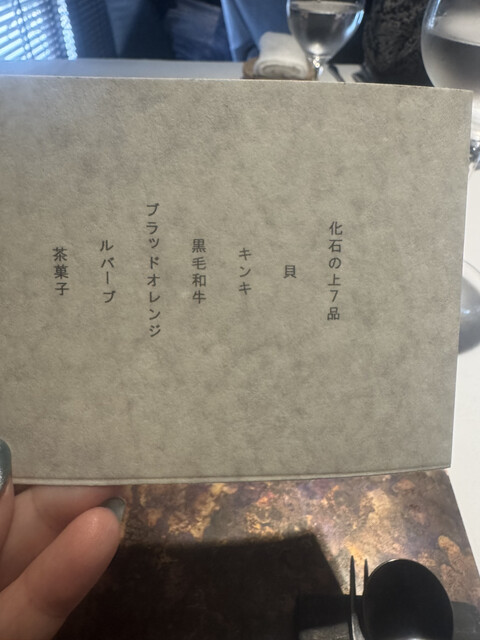 化石の上7品
貝
キンキ
黒毛和牛
ブラッドオレンジ
ルバーブ
茶菓子